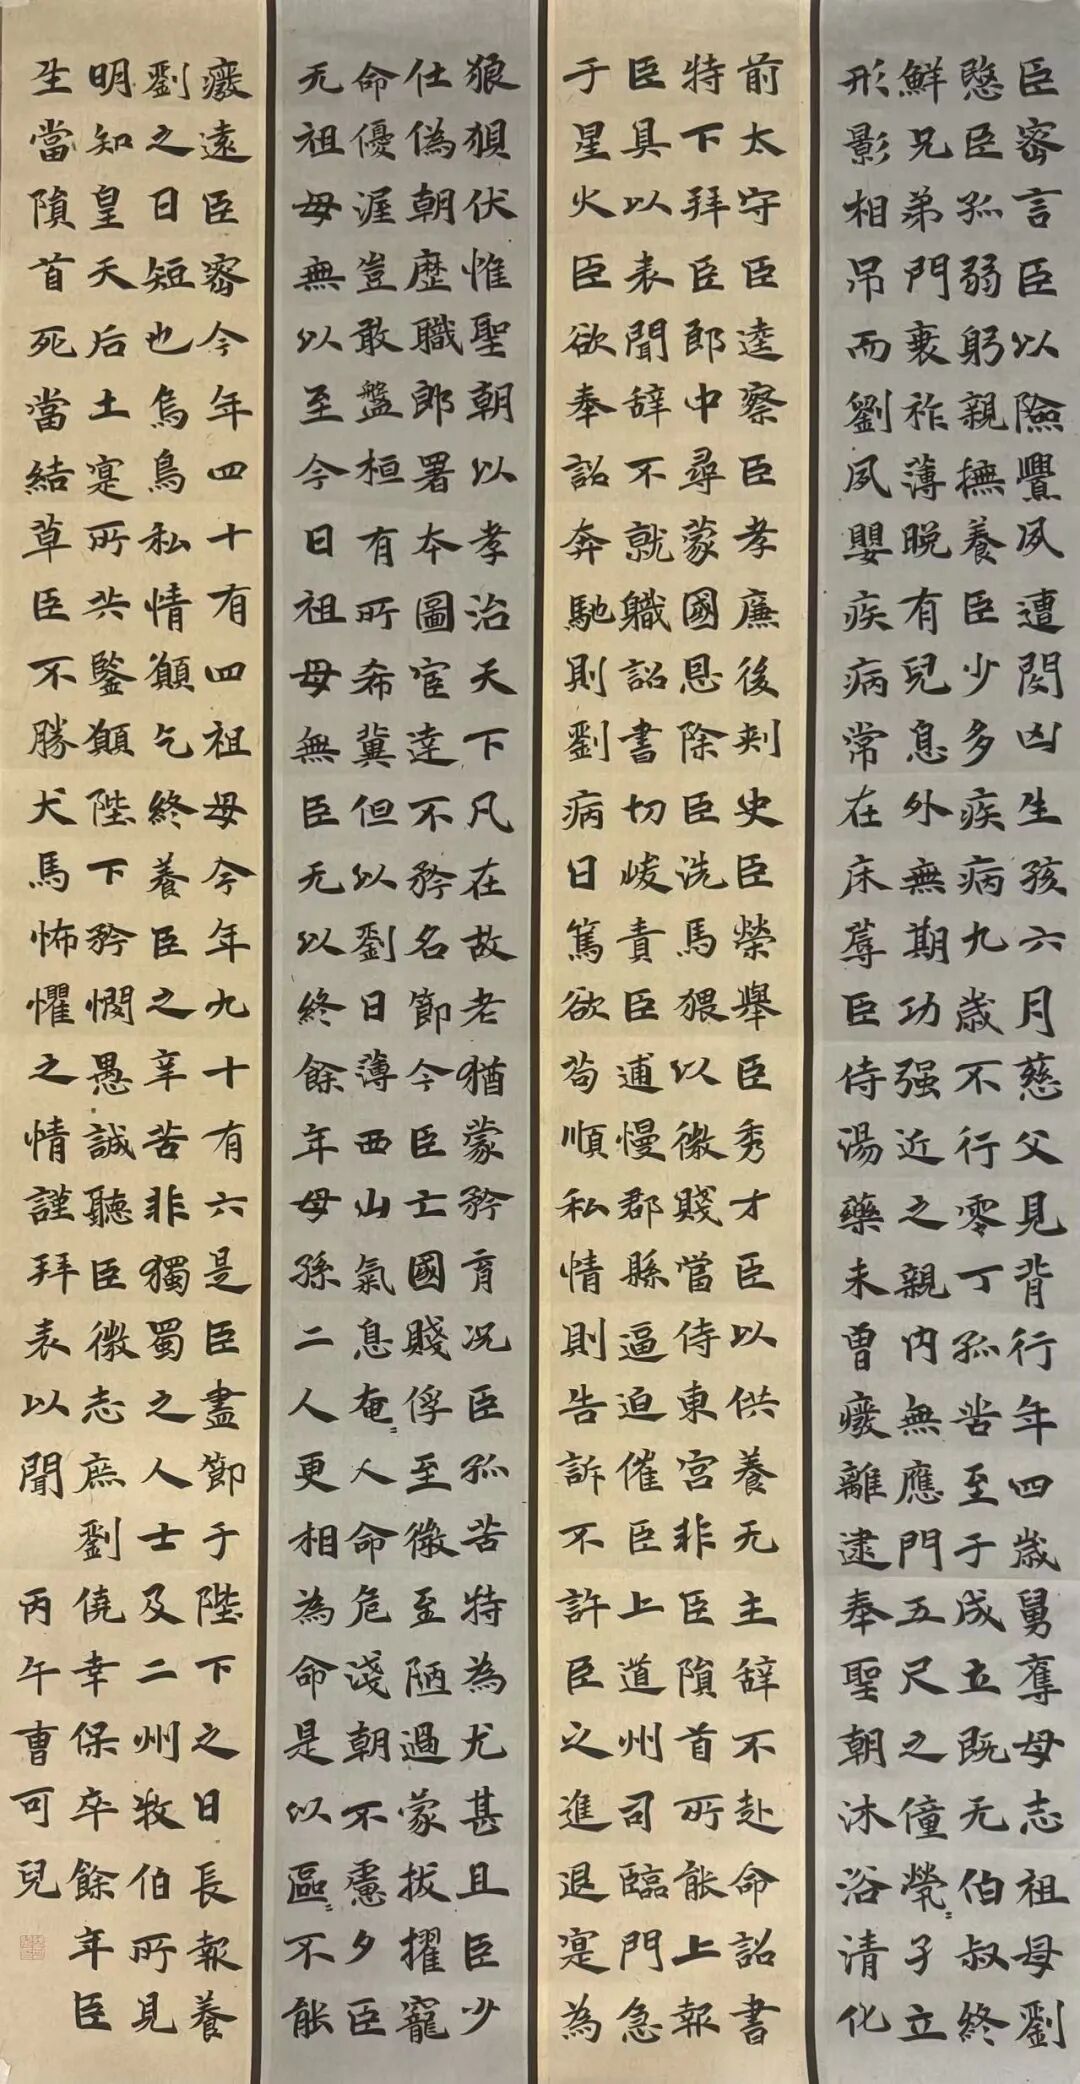 臣密言臣以險釁夙遭閔凶生孩六月慈父見背行年四歲舅奪母志祖母劉
愍臣孤弱躬親撫養臣少多疾病九歲不行零丁孤苦至于成立既无伯叔終
鮮兄弟門衰祚薄晚有兒息外無期功强近之親內無應門五尺之僮煢〻孑立
形影相吊而劉夙嬰疾病常在床蓐臣侍湯藥未曾廢離逮奉聖朝沐浴清化
前太守臣逵察臣孝廉後刺史臣榮舉臣秀才臣以供養无主辞不赴命詔書
特下拜臣郎中尋蒙國恩除臣洗馬猥以微賤當侍東宮非臣隕首所能上報
臣具以表聞辞不就職詔書切峻責臣逋慢郡縣逼迫催臣上道州司臨門急
于星火臣欲奉詔奔馳則劉病日篤欲苟順私情則告訴不許臣之進退寔為
狼狽伏惟聖朝以孝治天下凡在故老猶蒙矜育況臣孤苦特為尤甚且臣少
仕偽朝歷職郎署本圖宦達不矜名節今臣亡國賤俘至微至陋過蒙拔擢寵
命優渥豈敢盤桓有所希冀但以劉日薄西山氣息奄〻人命危淺朝不慮夕臣
无祖母無以至今日祖母無臣无以終餘年母孫二人更相為命是以區〻不能
廢遠臣密今年四十有四祖母今年九十有六是臣盡節于陛下之日長報養
劉之日短也烏鳥私情願乞終養臣之辛苦非獨蜀之人士及二州牧伯所見
明知皇天后土寔所共鑒願陛下矜憫愚誠聽臣微志庶劉僥幸保卒餘年臣
生當隕首死當結草臣不勝犬馬怖懼之情謹拜表以聞
丙午曹可兒